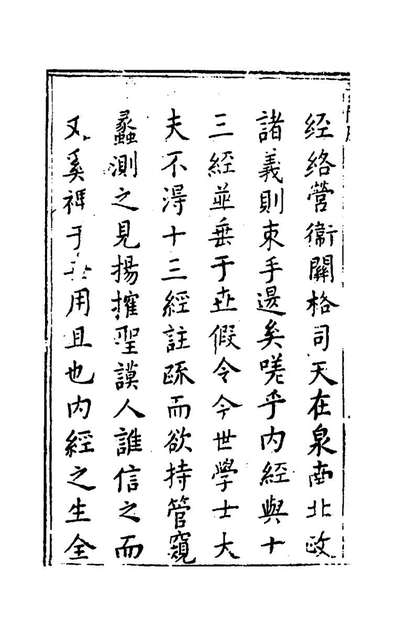 経络營衛關格司天在泉南北政
諸義則束手邊矣嗟乎内經與十
三經並垂于世假令今世學士大
夫不淂十三經註疏而欲持管窺
蠡測之見揚搉聖謨人誰信之而
又奚裨于用且也内經之生全